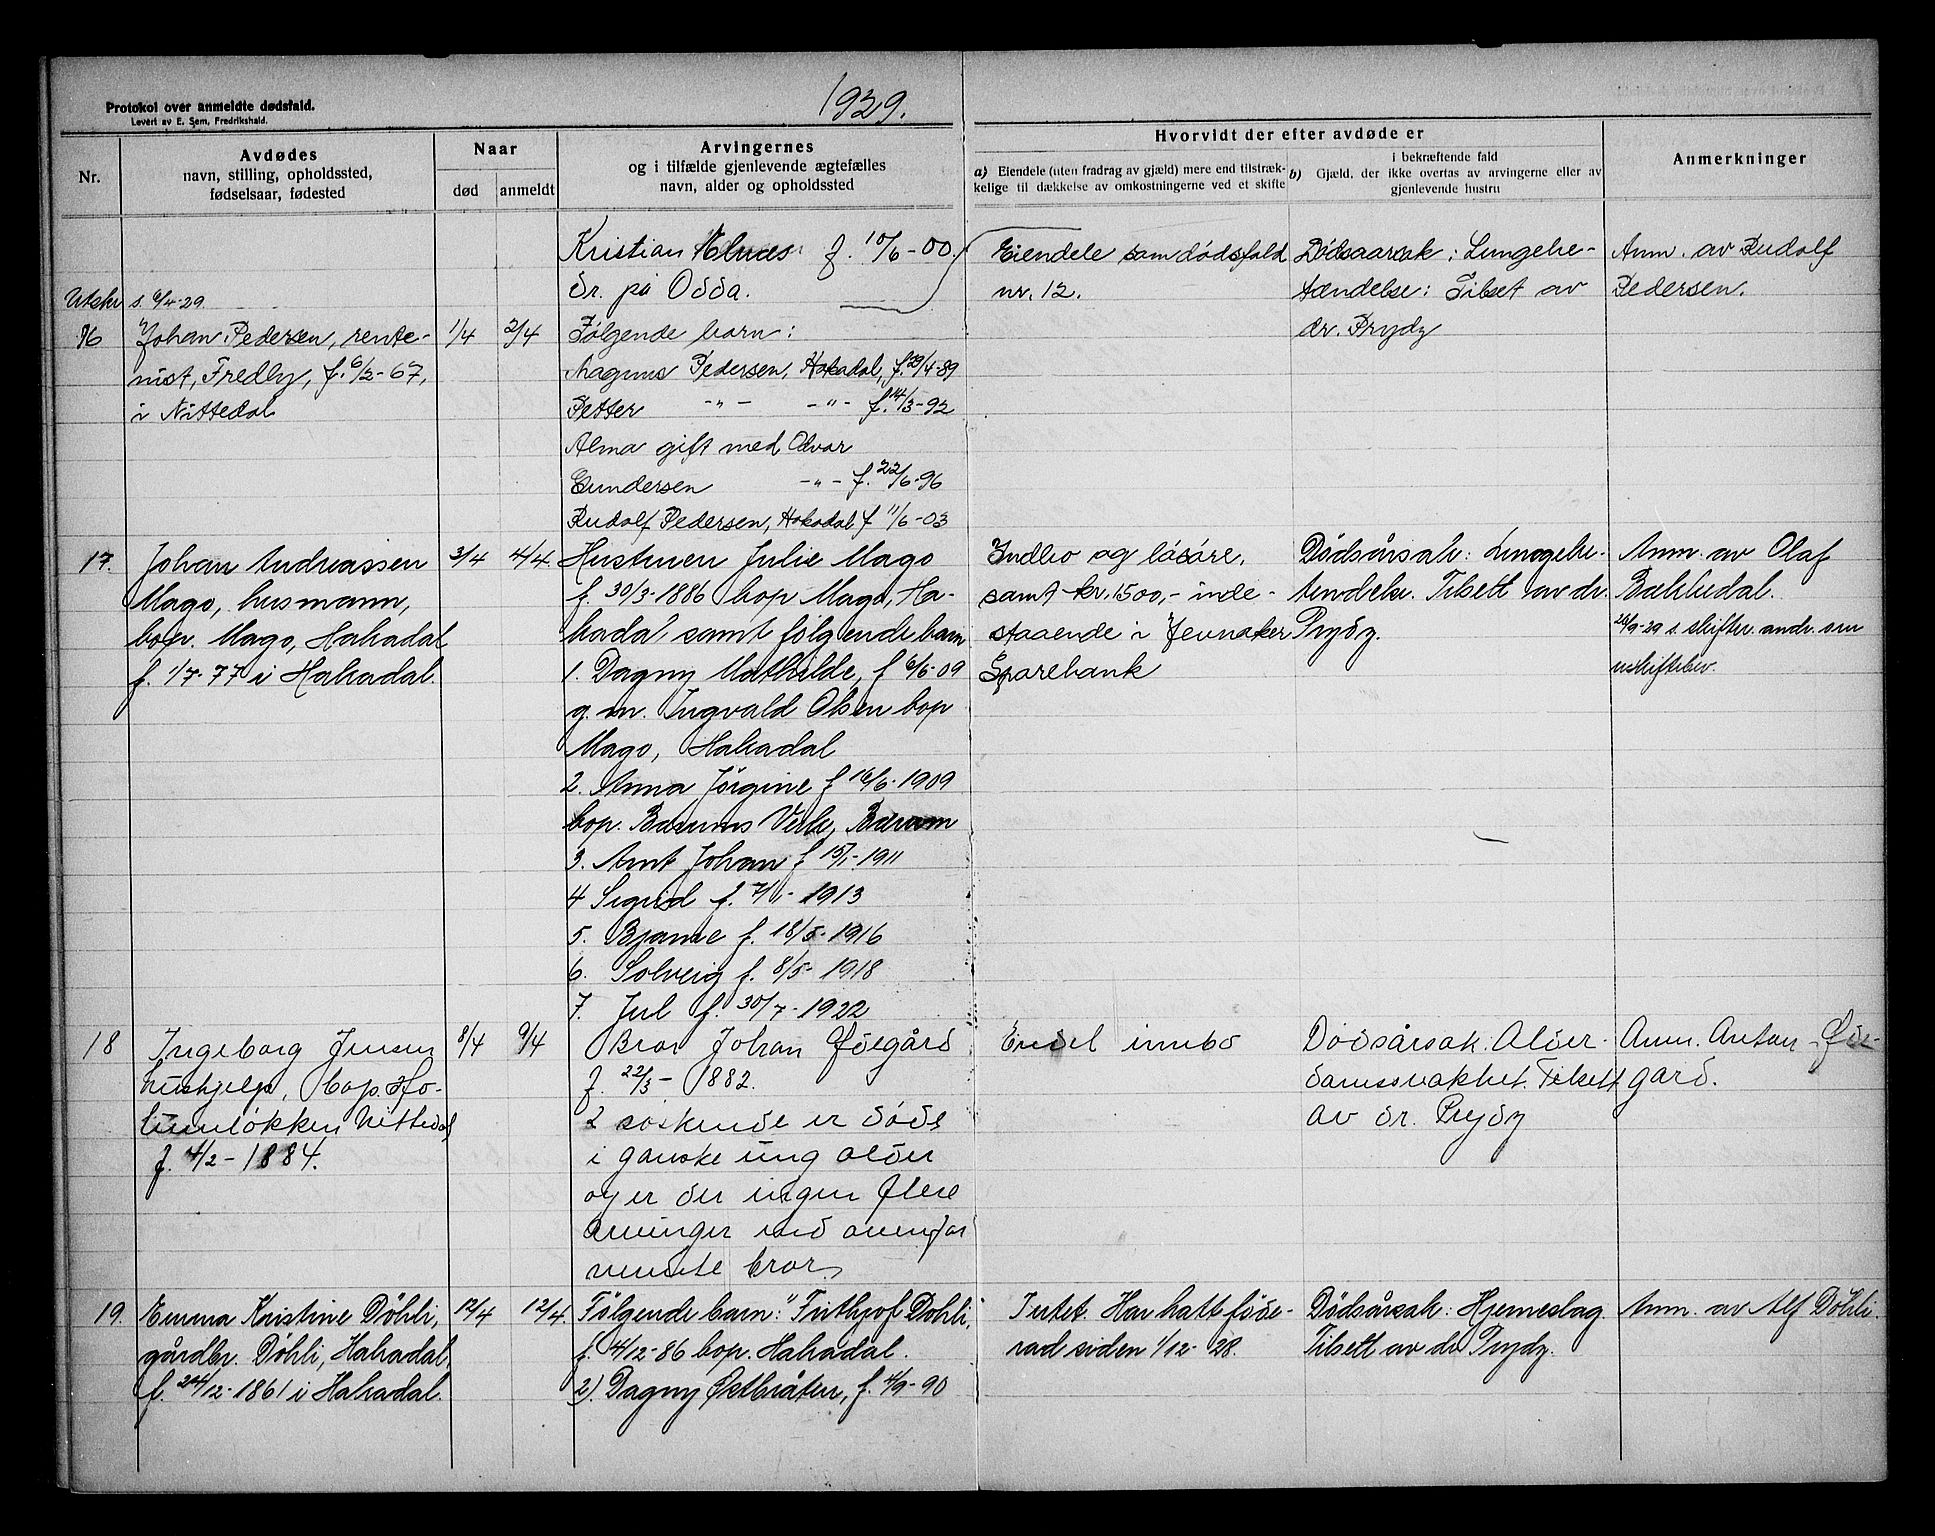 Protokol over anmeldte dødsfald.
Levert av E. Sem, Fredrikshald.
1929.
Nr.
Avdødes
navn, stilling, opholdssted,
fødselsaar, fødested
Naar
død
anmeldt
Arvingernes
og i tilfælde gjenlevende ægtefælles
navn, alder og opholdssted
Hvorvidt der efter avdøde er
a) Eiendele (uten fradrag av gjæld) mere end tilstræk-
kelige til dækkelse av omkostningerne ved et skifte
i bekræftende fald
b) Gjæld, der ikke overtas av arvingerne eller av
gjenlevende hustru
Anmerkninger
Kristian f. 10/6-00.
dr. på Odda.
Utskr. s. 6/4-29
16
Johan Pedersen, rente-
nist, Fredly, f. 6/2-67,
i Nittedal
1/4
2/4
Følgende barn:
Magnus Pedersen, Hakadal, f. 29/4-89
Petter -"- -"- f. 14/3-92
Alma gift med Olvar
Gundersen -"- f. 22/6-96
Rudolf Pedersen, Hakadal f 11/6-03
Eiendele som dødsfald
nr. 12.
Dødsaarsak: Lungebe-
tændelse: Tilset av
dr. Prydz
Anm. av Rudolf
Pedersen.
17.
Johan Andreassen
Mago, husmann,
boen. Mago, Hakadal
f. 1/7-77 i Hakadal.
3/4
4/4.
Hustruen Julie Mago
f. 30/3-1886 bop Mago, Ha-
kadal samt følgende barn
1. Dagny Mathilde, f 6/6-09
g. m. Ingvald Olsen bop
Mago, Hakadal
2. Anna Jørgine f 16/6-1909
bop. Bærums Verk, Bærum
3. Arnt Johan f 15/1-1911
4 Sigrid f. 7/1-1913
5. Bjarne f. 18/5-1916
6. Solveig f. 8/5-1918
7. Jul f. 30/7-1922
Indbo og løsøre,
samt kr. 1500,- inde-
staaende i Jevnaker
Sparebank
Dødsårsak: Lungebe-
tendelse. Tilsett av dr.
Prydz.
Anm. av Olaf
Bakkedal.
29/9-29 s. skifter. andr. om
uskiftebev.
18
Ingeborg Jensen
hushjelp, bop. Ho-
lumløkken Nittedal
f. 4/2-1884.
8/4
9/4
Bror Johan Ødegård
f. 22/3-1882.
2 søskende er døde
i ganske ung alder
og er der ingen flere
arvinger ved ovenfor
nevnte bror.
Endel innbo
Dødsårsak. Alder-
domssvakhet. Tilsett
av dr. Prydz
Anm. Anton Øde-
gård.
19.
Emma Kristine Døhli,
gårdbr. Døhli, Hakadal,
f. 24/12-1861 i Hakadal.
12/4
12/4
Følgende barn: Frithjof Døhli,
f. 4/12-86 bop. Hakadal.
2). Dagny Østbråten, f. 4/9-90
Intet. Har hatt føde-
rad siden 1/12-28.
Dødsårsak: Hjerneslag.
Tilsett av dr. Prydz.
Anm. av Alf Døhli.